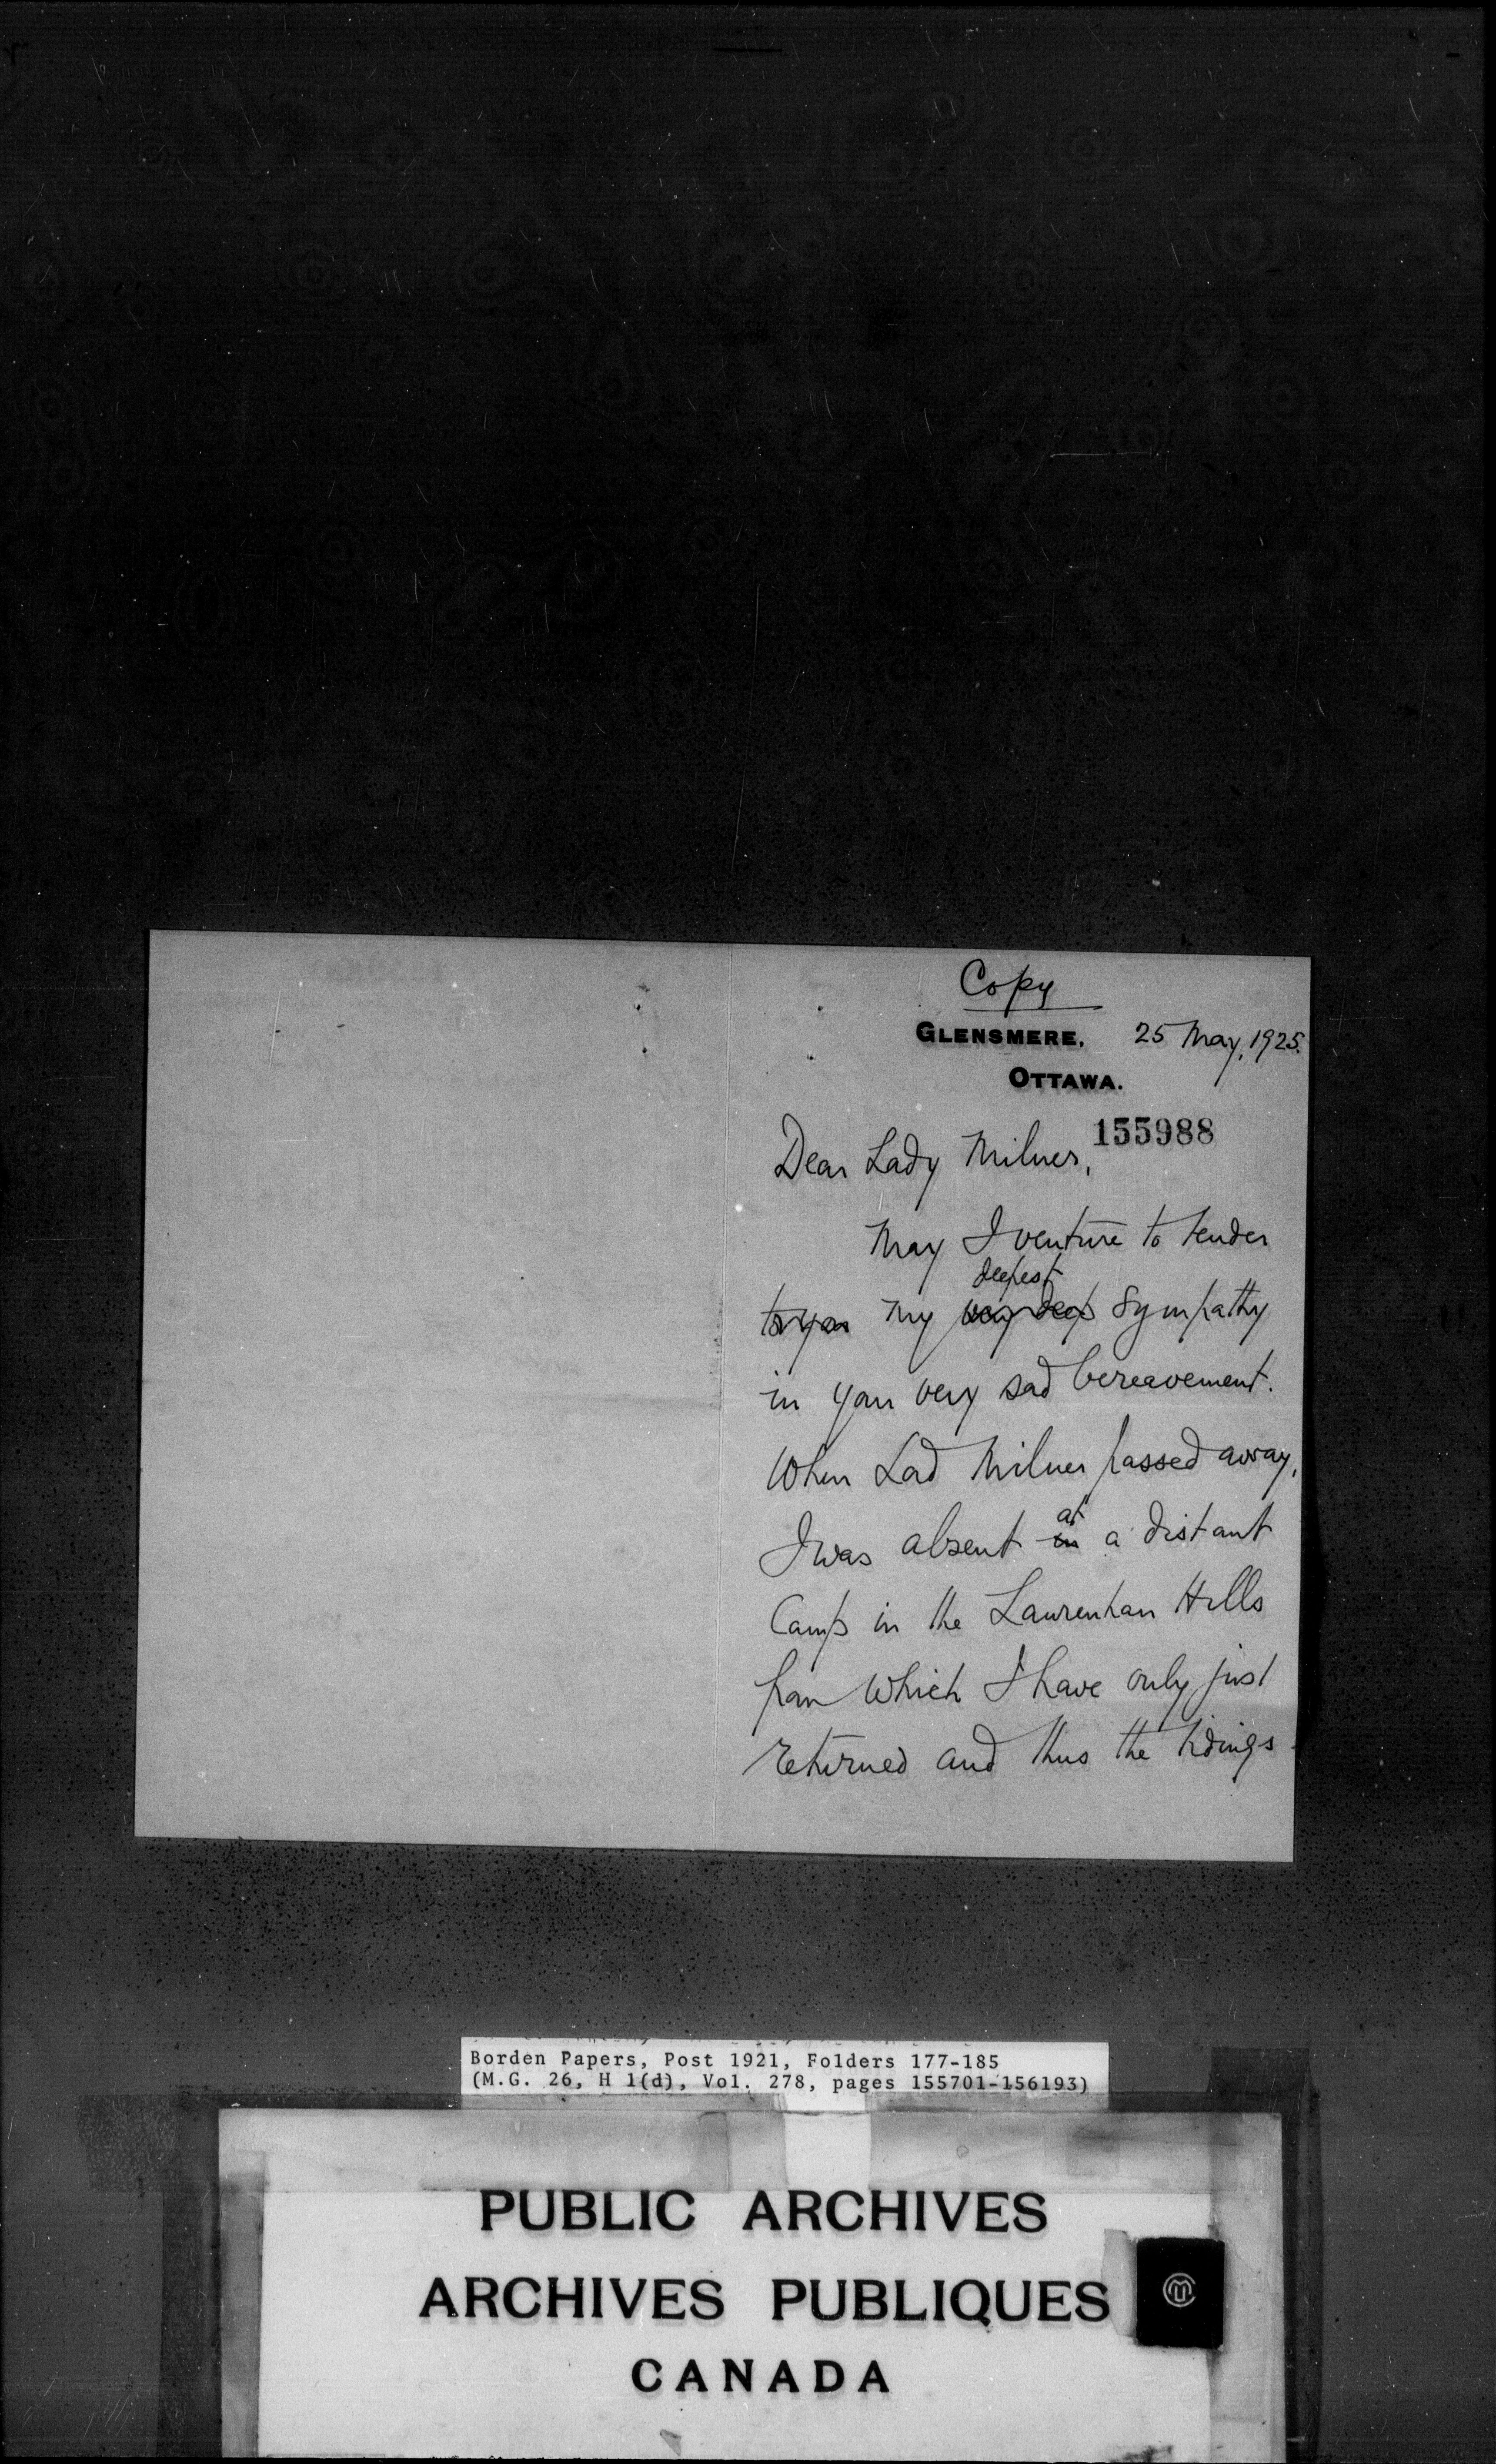 Copy
GLENSMERE, 25 May, 1925.
OTTAWA.
155988
Dear Lady Milner,
May I venture to tender
deepest
to you my very deep sympathy
in your very sad bereavement.
When Lord Milner passed away,
at
I was absent in a distant
Camp in the Laurentian Hills
from which I have only just
returned and thus the tidings
Borden Papers, Post 1921, Folders 177-185
(M.G. 26, H 1(d), Vol. 278, pages 155701-156193)
PUBLIC ARCHIVES
ARCHIVES PUBLIQUES
CANADA